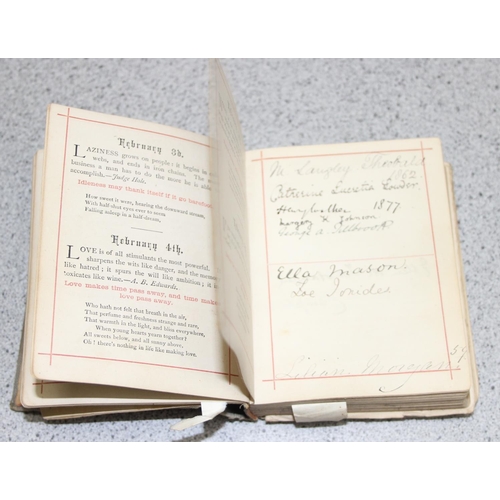 February 3d.
LAZINESS grows on people; it begins in
webs, and ends in iron chains. The
business a man has to do the more he is able
accomplish.—Judge Hale.
Idleness may thank itself if it go barefoot
How sweet it were, hearing the downward stream,
With half-shut eyes ever to seem
Falling asleep in a half-dream,
February 4th.
LOVE is of all stimulants the most powerful.
sharpens the wits like danger, and the memory
like hatred; it spurs the will like ambition; it
toxicates like wine.—A. B. Edwards.
Love makes time pass away, and time makes
love pass away.
Who hath not felt that breath in the air,
That perfume and freshness strange and rare,
That warmth in the light, and bliss everywhere,
When young hearts yearn together?
All sweets below, and all sunny above,
Oh! there's nothing in life like making love.
Langley
1862
Catherine
1877
George A.
Ella Mason.
Zoe Ionides
Lilian Morgan
57